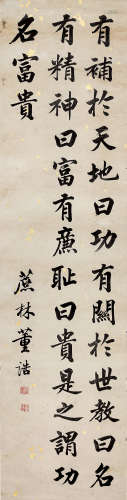 有補於天地曰功有關於世教曰名
有精神曰富有廉恥曰貴是之謂功
名富貴
蔗林董誥